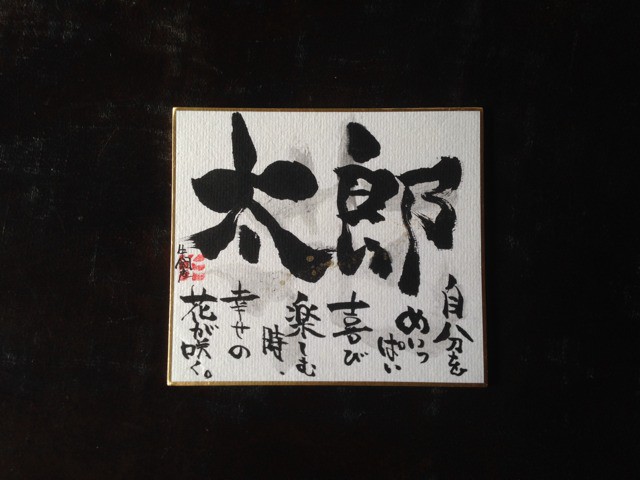 太郎
自分を
めいっ
ぱい
喜び
楽しむ
時、
幸せの
花が咲く。